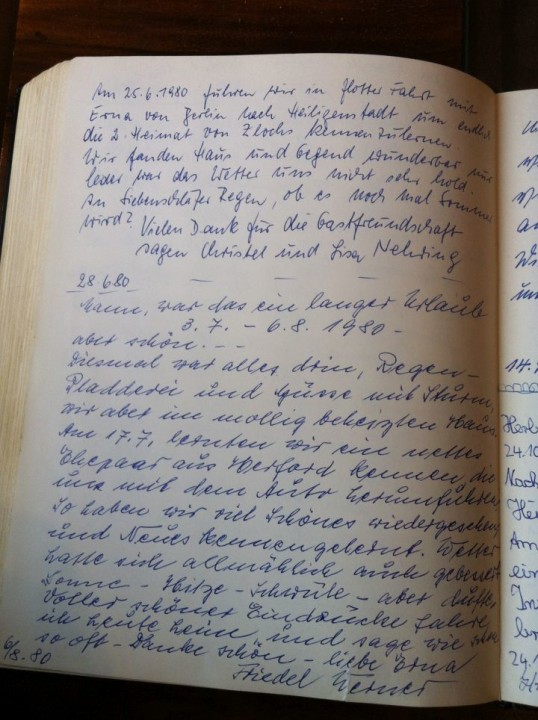 Am 25.6.1980 fuhren wir in flotter Fahrt mit
Erna von Berlin nach Heiligenstadt um endlich
die 2. Heimat von kennenzulernen.
Wir fanden Haus und Gegend wunderbar nur
leider war das Wetter uns nicht sehr hold.
An Siebenschläfer Regen, ob es noch mal Sommer
wird? Vielen Dank für die Gastfreundschaft
sagen Christel und Lisa Nehring
28.6.80
Mann, war das ein langer Urlaub
3.7. - 6.8. 1980 -
aber schön. - -
Diesmal war alles drin, Regen-
Pladderei und Güsse mit Sturm,
wir aber im mollig beheizten Haus.
Am 17.7. lernten wir ein nettes
Ehepaar aus Herford kennen, die
uns mit dem Auto herumfuhren,
so haben wir viel Schönes wiedergesehen
und Neues kennengelernt. Wetter
hatte sich allmählich auch gebessert
Sonne - Hitze - Schwüle - aber
Voller schöner Eindrücke fahre
ich heute heim und sage wie schon
so oft - Danke schön - liebe Erna
6/8.80
Friedel Werner
14.
24.10
Nach
Am
24.1